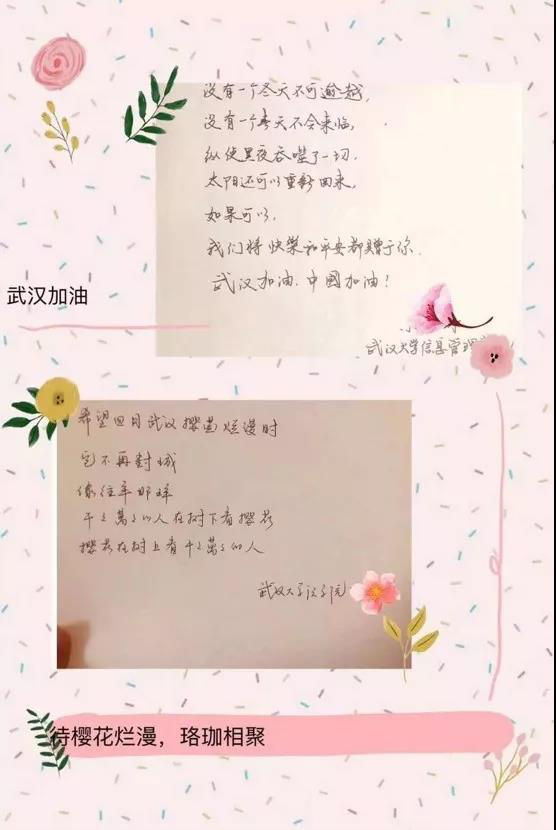 没有一个冬天不可逾越,
没有一个春天不会来临,
纵使黑夜吞噬了一切,
太阳还可以重新回来。
如果可以,
我们将快樂和平安都赠于你.
武汉加油.中國加油!
武汉大学信息管理
武汉加油
希望四月武汉樱花烂漫时
它不再封城
像往年那样
千千萬萬的人在树下看櫻花
櫻花在树上看千千萬萬的人
武汉大学法学院
待樱花烂漫，珞珈相聚